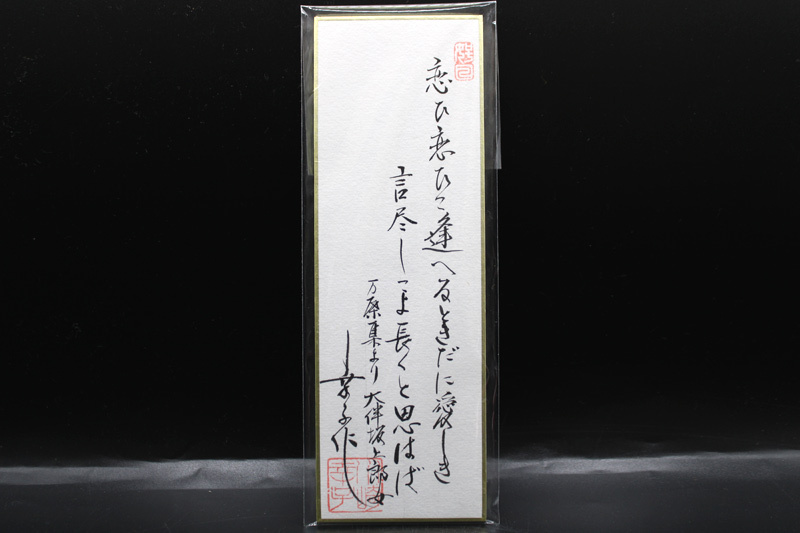 恋ひ恋ひて逢へるときだに愛しき
言尽してよ長くと思はば
万葉集より 大伴坂上郎女
幸子作